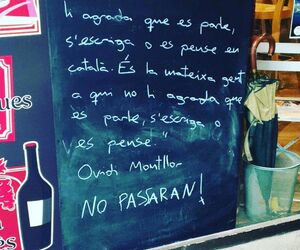 li agrada que es parle,
s'escriga o es pense en
català. És la mateixa gent
a qui no li agrada que
es parle, s'escriga o
es pense."
Ovidi Montllor
NO PASSARAN!
ques